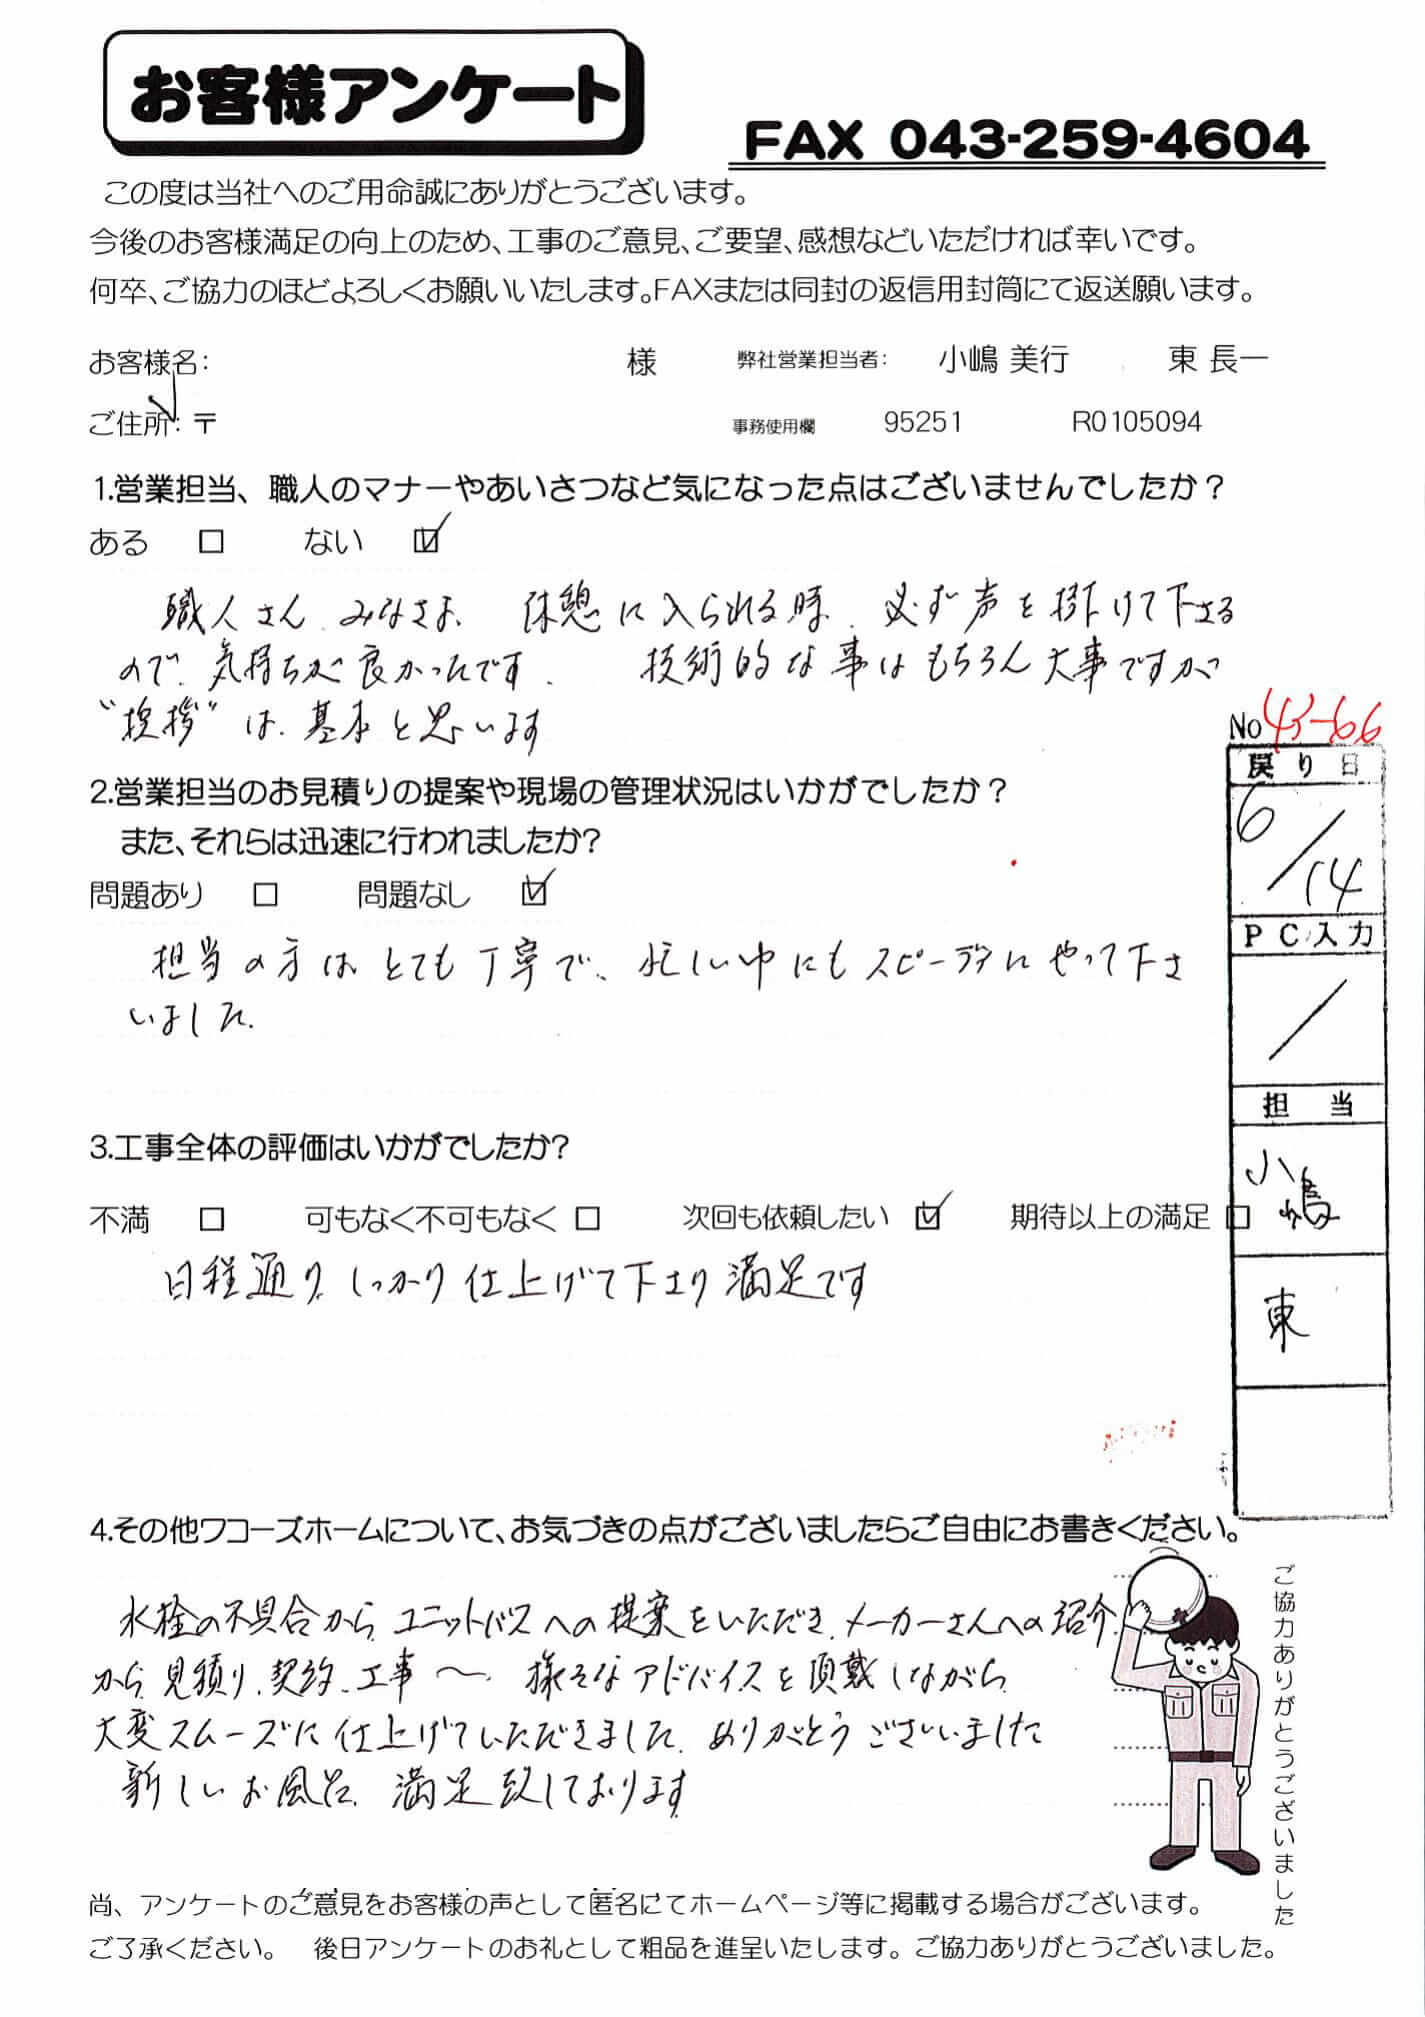 お客様アンケート
FAX 043-259-4604
この度は当社へのご用命誠にありがとうございます。
今後のお客様満足の向上のため、工事のご意見、ご要望、感想などいただければ幸いです。
何卒、ご協力のほどよろしくお願いいたします。FAXまたは同封の返信用封筒にて返送願います。
お客様名: 様 弊社営業担当者: 小嶋 美行 東 長一
ご住所: 〒 事務使用欄 95251 R0105094
1.営業担当、職人のマナーやあいさつなど気になった点はございませんでしたか?
ある □ ない ☑
職人さん みなさま、休憩に入られる時、必ず声を掛けて下さる
ので、気持ちが良かったです。 技術的な事はもちろん大事ですが
"挨拶"は、基本と思います
2.営業担当のお見積りの提案や現場の管理状況はいかがでしたか?
また、それらは迅速に行われましたか?
問題あり □ 問題なし ☑
担当の方は、とても丁寧で、忙しい中にもスピーディにやって下さ
いました。
3.工事全体の評価はいかがでしたか?
不満 □ 可もなく不可もなく □ 次回も依頼したい ☑ 期待以上の満足 □
日程通り、しっかり仕上げて下さり満足です
No 45-66
戻り日
6/14
PC入力
/
担当
小嶋
東
4.その他ワコーズホームについて、お気づきの点がございましたらご自由にお書きください。
水栓の不具合から、ユニットバスへの提案をいただき、メーカーさんへの紹介
から、見積り、契約、工事〜 様々なアドバイスを頂戴しながら、
大変スムーズに仕上げていただきました。ありがとうございました
新しいお風呂、満足致しております
ご協力ありがとうございました
尚、アンケートのご意見をお客様の声として匿名にてホームページ等に掲載する場合がございます。
ご了承ください。 後日アンケートのお礼として粗品を進呈いたします。ご協力ありがとうございました。